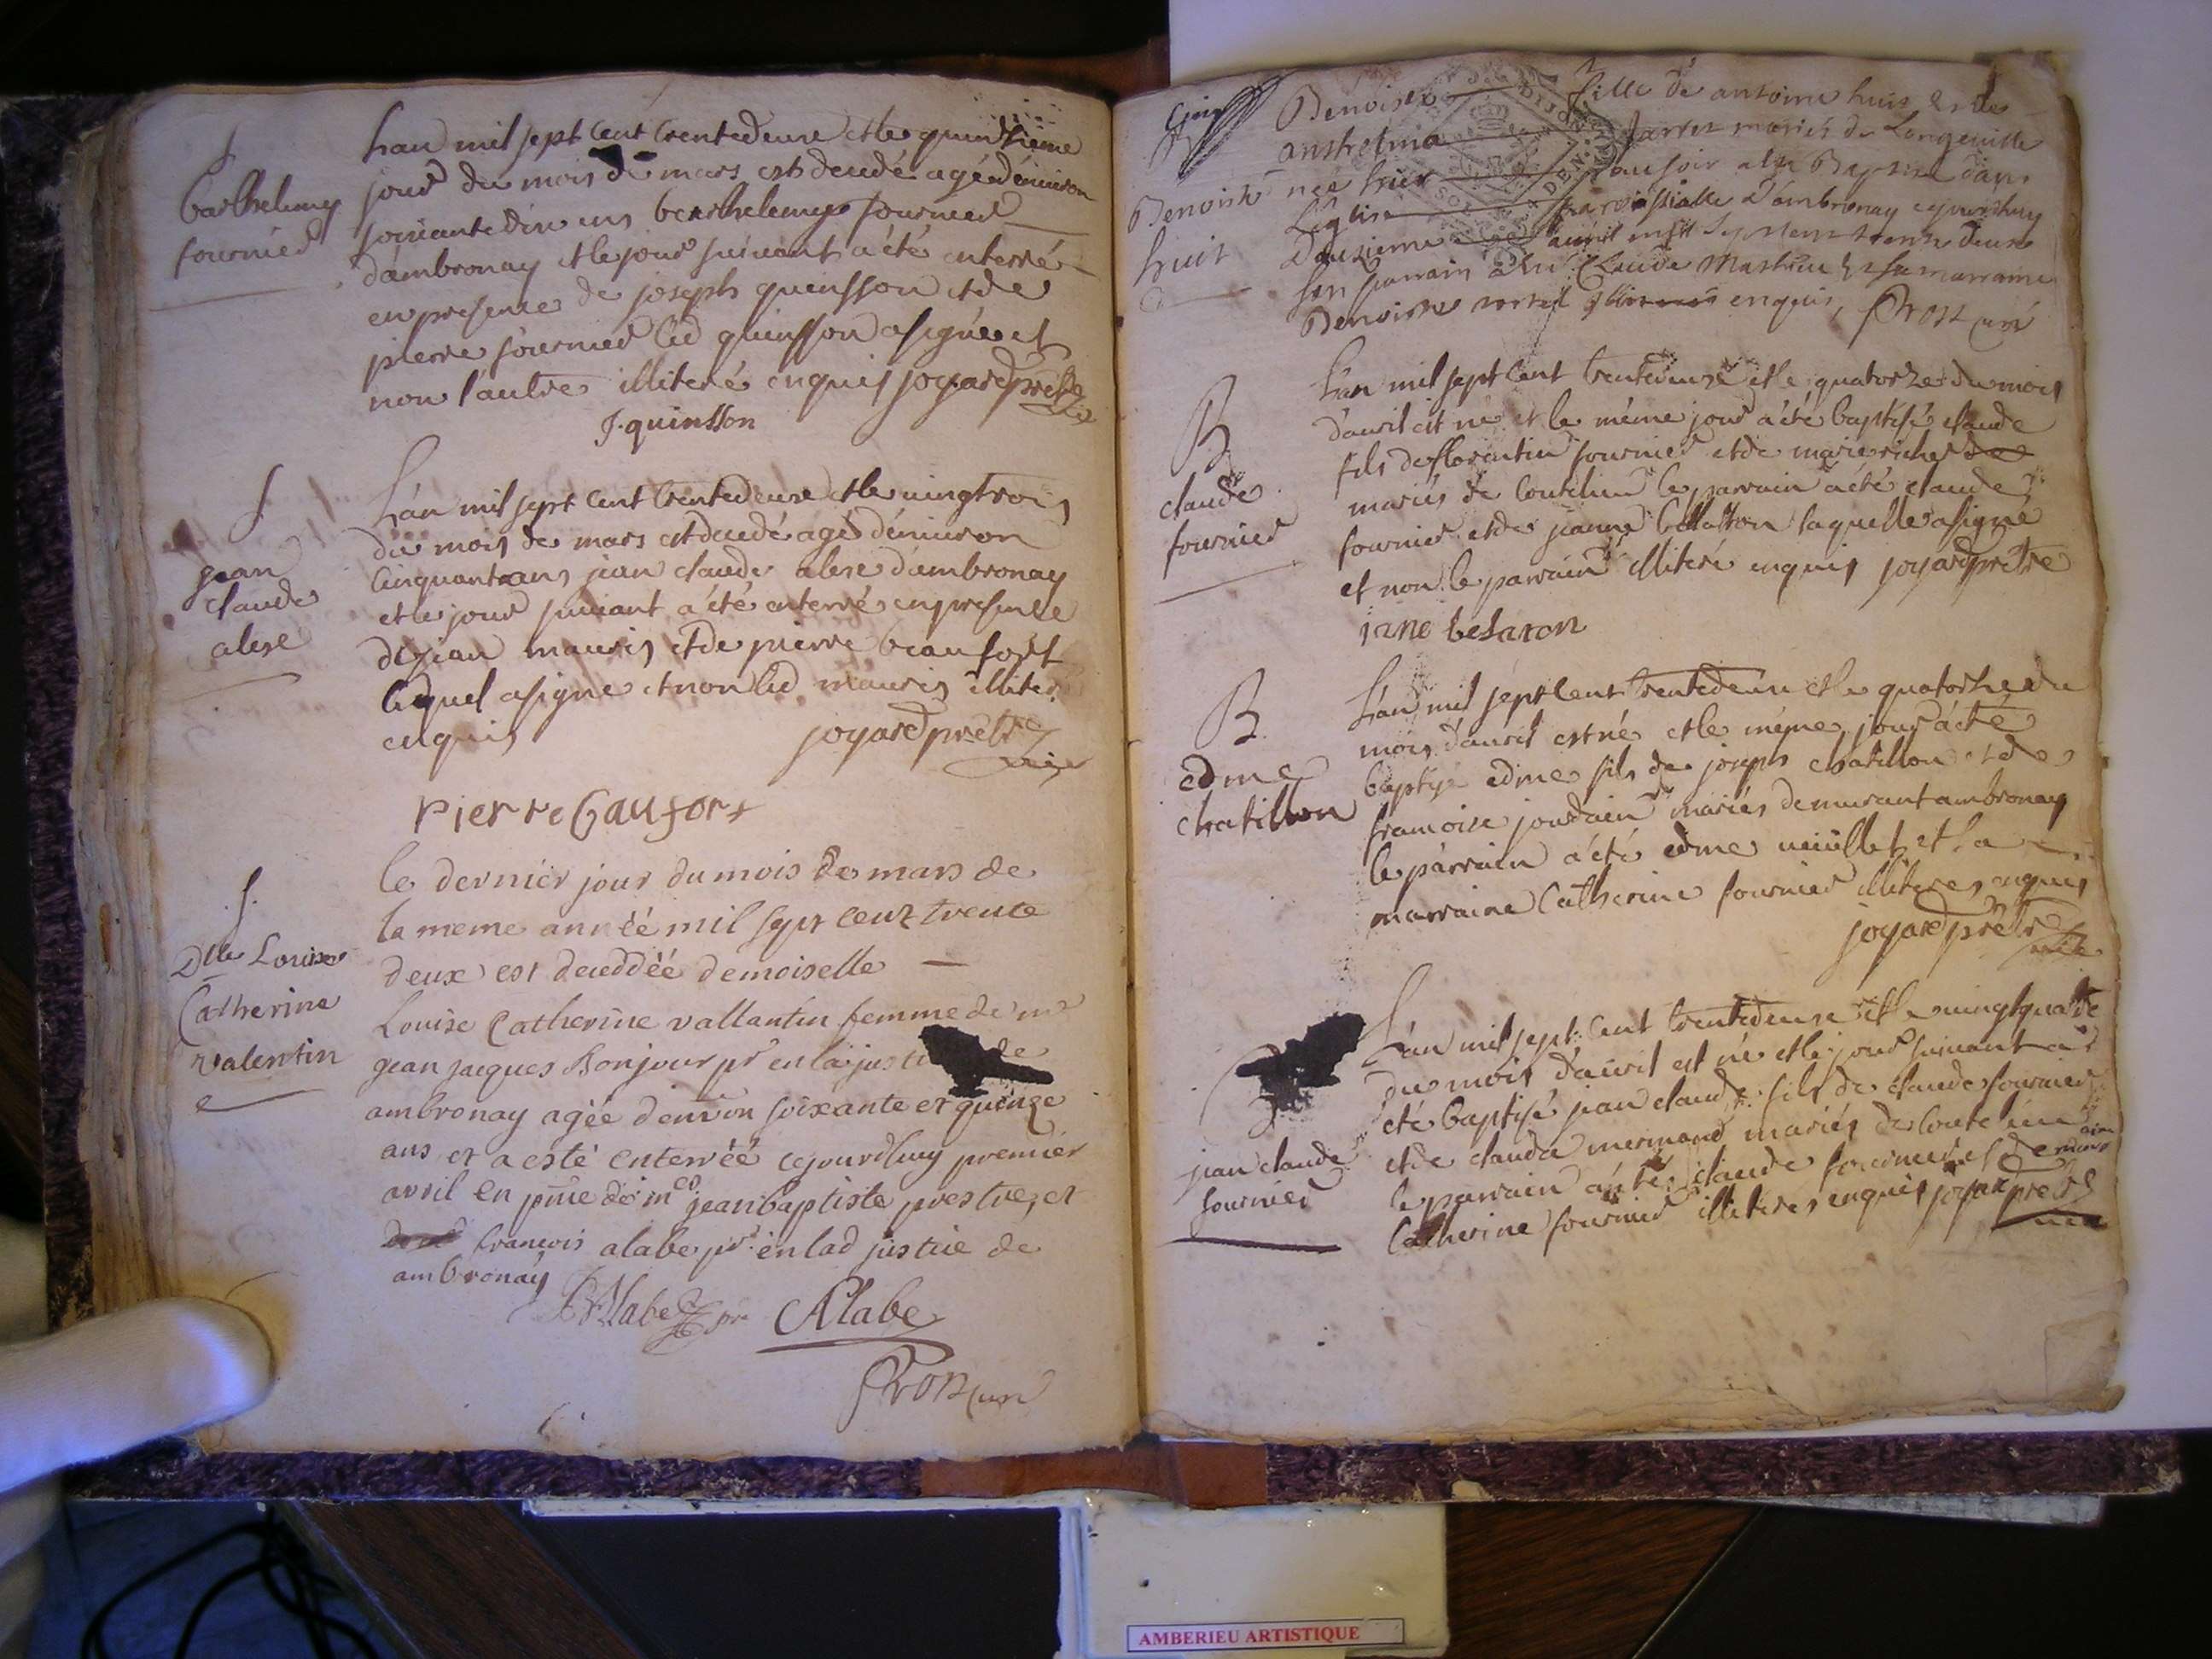 Lan mil sept cent trentedeux et le quinzieme
jour du mois de mars est decedé agé d'environ
soixante dix ans berthelemy fournier
d'ambronay et le jour suivant a été enterré
en presence de joseph quinsson et de
pierre fournier led quinsson a signé et
non l'autre illiteré enquis joyard pretre
J. quinsson
f
barthelemy
fournier
L'an mil sept cent trentedeux et le vingtrois
du mois de mars est decedé agé d'environ
cinquante ans jean claude alese d'ambronay
et le jour suivant a été enterré en presence
de jean mauris et de pierre beaufort
lequel a signe et non led mauris illiteré
enquis joyard pretre
pierre baufort
f
jean
claude
alese
le dernier jour du mois de mars de
la meme année mil sept cent trente
deux est deceddéé demoiselle
Louise Catherine vallantin femme de me
jean jacques Bonjour pr en la justi de
ambronay agée d'environ soixante et quinze
ans et a esté enterréé cejourdhuy premier
avril en pnce de mes jean baptiste prestre, et
francois alabe pr en lad justice de
ambronay
Alabe ptre Alabe
Prost curé
f.
Dlle Louise
Catherine
valentin
Benoiste fille de antoine huit et de
anthelma mariés de Longeville
née hier au soir a esté Baptisée dans
L'Eglise paroissialle D'ambronay cejourdhuy
Douzieme avril mil sept cent trente deux
son parrain a été Claude Mathieu et sa marraine
Benoiste enquis, Prost curé
Benoiste
huit
L'an mil sept cent trentedeuxe et le quatorze du mois
d'avril est né et le même jour a été baptisé claude
fils de florentin fournier et de marie richerd
mariés de coutelieu le parrain a été claude
fournier et de jeanne bellatton laquelle a signe
et non le parrain illiteré enquis joyard pretre
jane belaton
B
claude
fournier
L'an mil sept cent trentedeux et le quatorze du
mois d'avril est né et le même jour a été
baptisé edme fils de joseph chatillon et de
francoise jourdain mariés demeurant ambronay
le parrain a été edme et la
marraine Catherine fournier illiteres enquis
joyard pretre
B
edme
chatillon
L'an mil sept cent trentedeux et le vingtquatre
du mois d'avril est né et le jour suivant a
été baptisé jean claude fils de claude fournier
et de clauda mermand mariés de coutelieu
le parrain a été claude fournier et de
Catherine fournier illiteres enquis joyard pretre
jean claude
fournier
AMBERIEU ARTISTIQUE